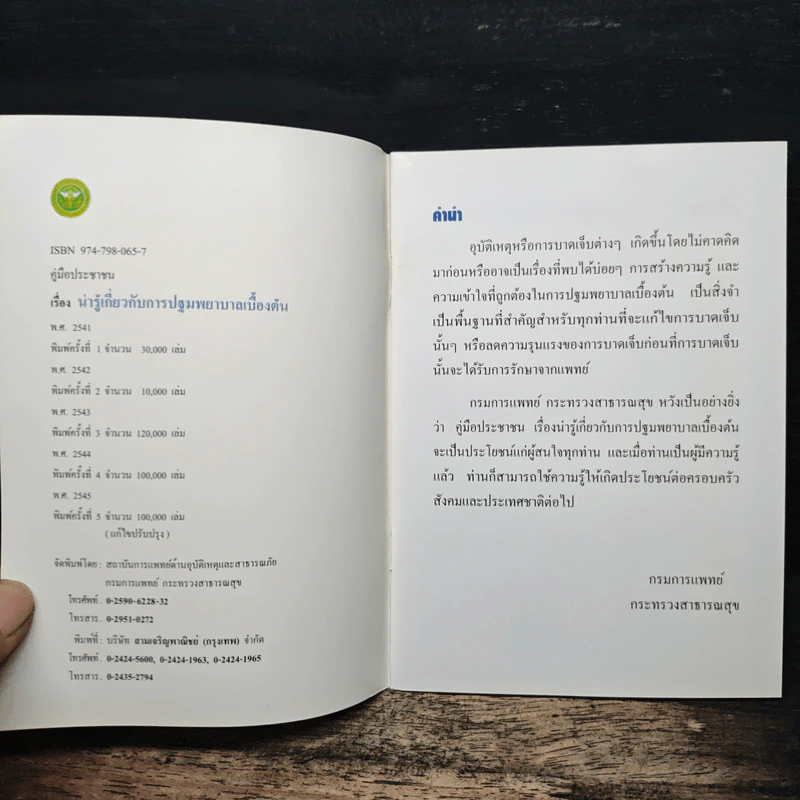 ISBN 974-798-065-7
คู่มือประชาชน
เรื่อง น่ารู้เกี่ยวกับการปฐมพยาบาลเบื้องต้น
พ.ศ. 2541
พิมพ์ครั้งที่ 1 จำนวน 30,000 เล่ม
พ.ศ. 2542
พิมพ์ครั้งที่ 2 จำนวน 10,000 เล่ม
พ.ศ. 2543
พิมพ์ครั้งที่ 3 จำนวน 120,000 เล่ม
พ.ศ. 2544
พิมพ์ครั้งที่ 4 จำนวน 100,000 เล่ม
พ.ศ. 2545
พิมพ์ครั้งที่ 5 จำนวน 100,000 เล่ม
(แก้ไขปรับปรุง)
จัดพิมพ์โดย: สถาบันการแพทย์ด้านอุบัติเหตุและสาธารณภัย
กรมการแพทย์ กระทรวงสาธารณสุข
โทรศัพท์. 0-2590-6228-32
โทรสาร. 0-2951-0272
พิมพ์ที่: บริษัท สามเจริญพาณิชย์ (กรุงเทพ) จำกัด
โทรศัพท์. 0-2424-5600, 0-2424-1963, 0-2424-1965
โทรสาร. 0-2435-2794
คำนำ
อุบัติเหตุหรือการบาดเจ็บต่างๆ เกิดขึ้นโดยไม่คาดคิด
มาก่อนหรืออาจเป็นเรื่องที่พบได้บ่อยๆ การสร้างความรู้ และ
ความเข้าใจที่ถูกต้องในการปฐมพยาบาลเบื้องต้น เป็นสิ่งจำ
เป็นพื้นฐานที่สำคัญสำหรับทุกท่านที่จะแก้ไขการบาดเจ็บ
นั้นๆ หรือลดความรุนแรงของการบาดเจ็บก่อนที่การบาดเจ็บ
นั้นจะได้รับการรักษาจากแพทย์
กรมการแพทย์ กระทรวงสาธารณสุข หวังเป็นอย่างยิ่ง
ว่า คู่มือประชาชน เรื่องน่ารู้เกี่ยวกับการปฐมพยาบาลเบื้องต้น
จะเป็นประโยชน์แก่ผู้สนใจทุกท่าน และเมื่อท่านเป็นผู้มีความรู้
แล้ว ท่านก็สามารถใช้ความรู้ให้เกิดประโยชน์ต่อครอบครัว
สังคมและประเทศชาติต่อไป
กรมการแพทย์
กระทรวงสาธารณสุข